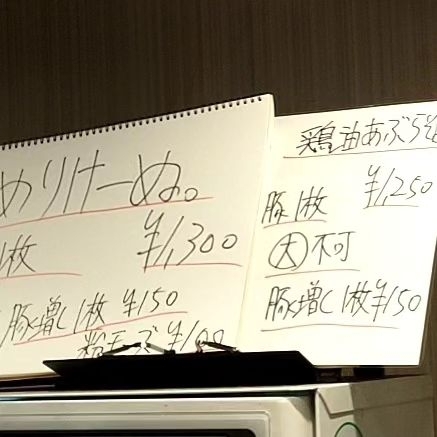 めりけーぬ。
1枚 ¥1,300
豚増し1枚 ¥150
粉チーズ ¥100
鶏油あぶらそ
豚1枚 ¥1,250
大不可
豚増し1枚¥150